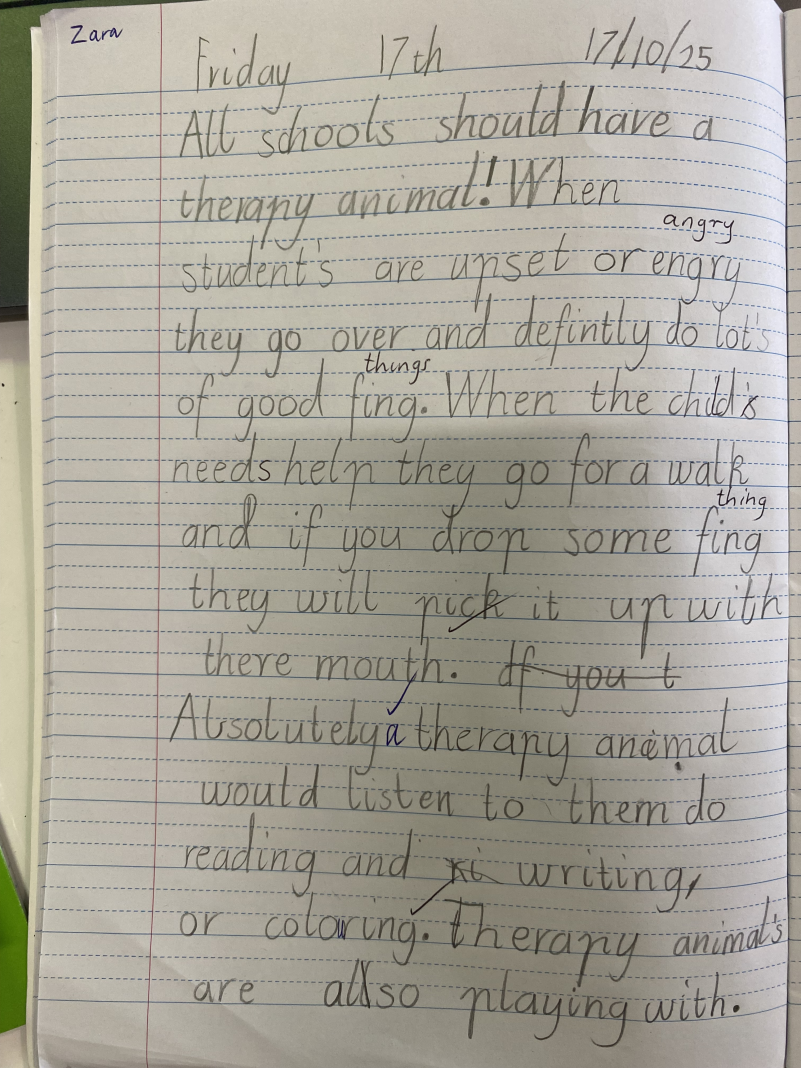 Zara
Friday 17th 17/10/25
All schools should have a
therapy animal! When
angry
student's are upset or engry
they go over and defintly do lot's
things
of good fing. When the child's
needs help they go for a walk
thing
and if you drop some fing
they will pick it up with
there mouth. If you t
Absolutely a therapy animal
would listen to them do
reading and writing,
or coloring. Therapy animal's
are allso playing with.